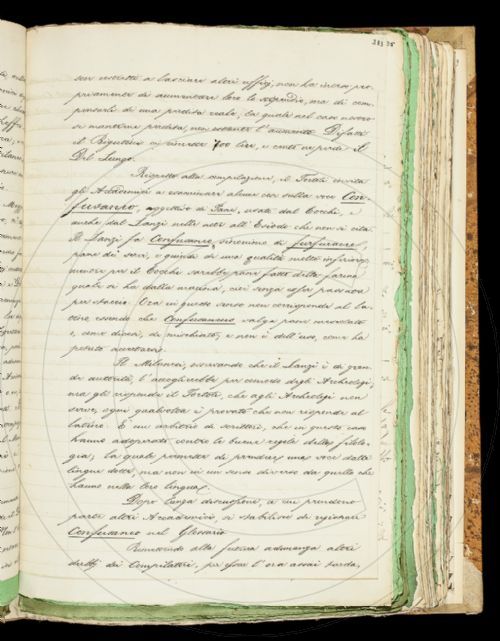 383 35
son costretti a lasciare altri uffizj, non ha inteso pro-
priamente di aumentare loro lo stipendio, ma di com-
pensarli di una perdita reale, la quale nel caso nostro
si mantiene perdita, non ostante l'aumento. Difatti
il Rigutini ci rimette 700 lire, e cento ne perde il
Del Lungo.
Rispetto alla compilazione, il Tortoli invita
gli Accademici a esaminare alcune cose sulla voce Con-
fusaneo, aggettivo di Pane, usata dal Cocchi, e
anche dal Lanzi nelle note all'Esiodo che non si cita.
Il Lanzi fa Confusaneo sinonimo di furfuraceo,
pane dei servi, e quindi di una qualità molto inferiore,
mentre per il Cocchi sarebbe pane fatto della farina
quale si ha dalla macina, cioè senza esser passata
per staccio. Ora in questo senso non corrisponde al la-
tino essendo che Confusaneus valga pane mescolato
e, come dicesi, di mischiato; e non è dell'uso, come ha
potuto accertarsi.
Il Milanesi, osservando che il Lanzi è di gran-
de autorità, l'accoglierebbe per comodo degli Archeologi,
ma gli risponde il Tortoli, che agli Archeologi non
serve, ogni qualvolta è provato che non risponde al
latino. È un arbitrio di scrittori, che in questo caso
hanno adoperato contro le buone regole della filolo-
gia, la quale permette di prendere una voce dalle
lingue dotte, ma non in un senso diverso da quello che
hanno nella loro lingua.
Dopo lunga discussione, a cui prendono
parte altri Accademici, si stabilisce di registrare
Confusaneo nel Glossario.
Rimettendo alla futura adunanza altri
dubbj dei Compilatori, per esser l'ora assai tarda,